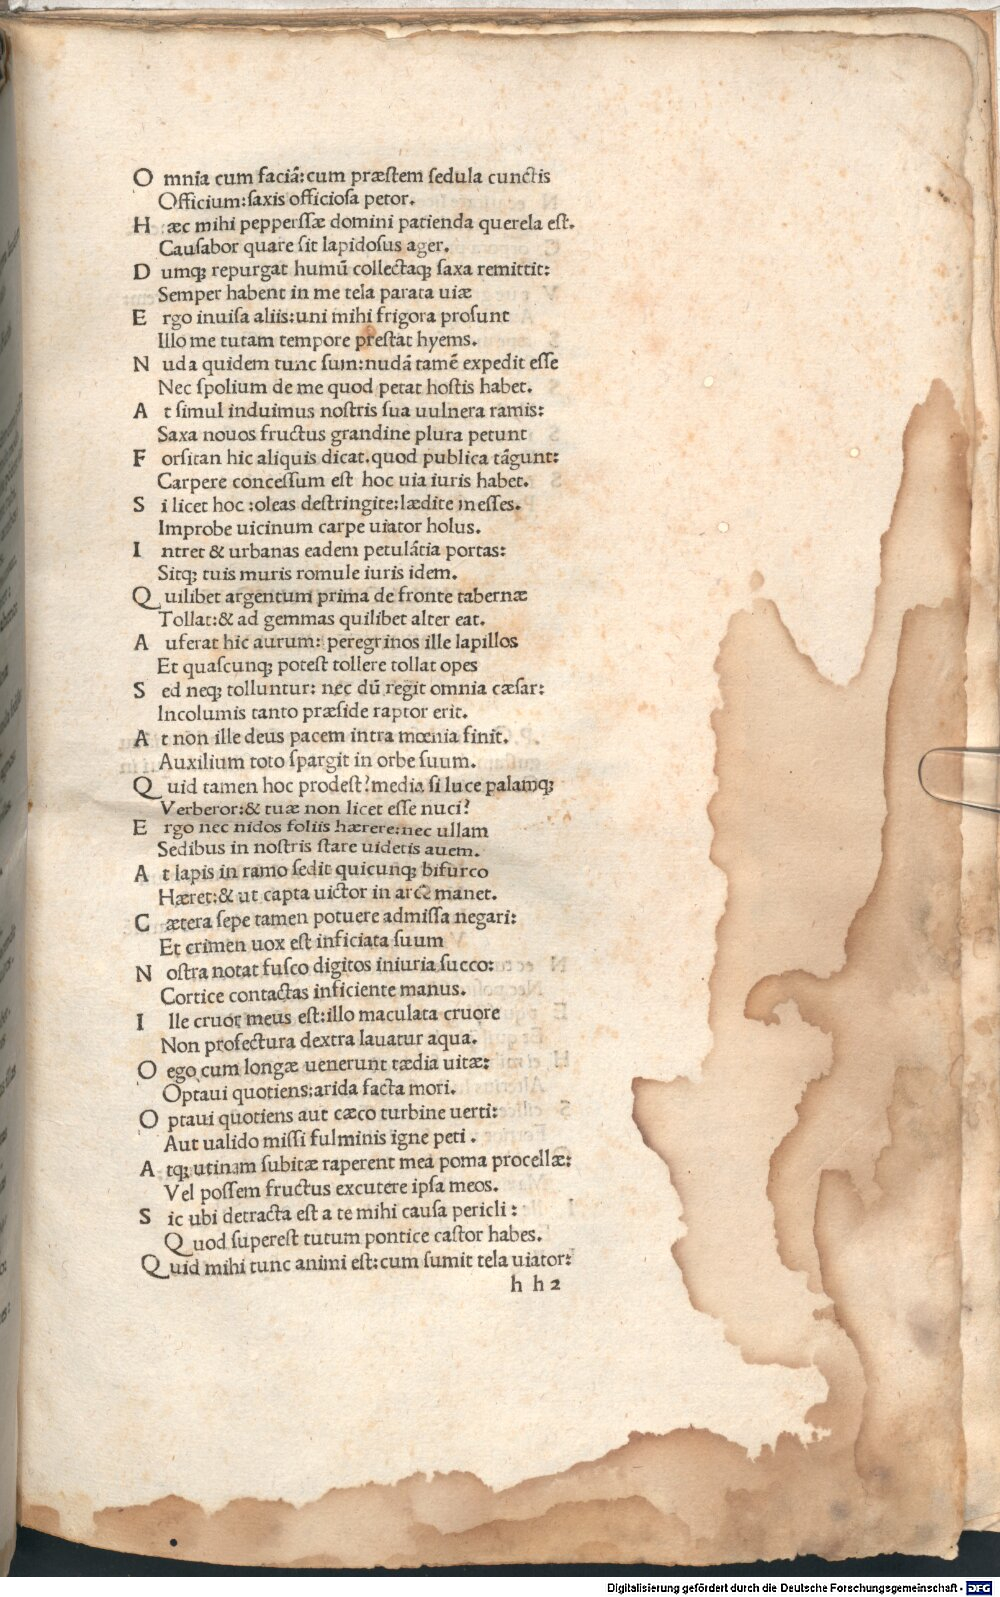 O mnia cum faciā: cum præstem sedula cunctis
Officium: saxis officiosa petor.
H æc mihi pepperssæ domini patienda querela est.
Causabor quare sit lapidosus ager.
D umq; repurgat humū collectaq; saxa remittit:
Semper habent in me tela parata uiæ
E rgo inuisa aliis: uni mihi frigora prosunt
Illo me tutam tempore prestat hyems.
N uda quidem tunc sum: nudā tamē expedit esse
Nec spolium de me quod petat hostis habet.
A t simul induimus nostris sua uulnera ramis:
Saxa nouos fructus grandine plura petunt
F orsitan hic aliquis dicat. quod publica tāgunt:
Carpere concessum est hoc uia iuris habet.
S i licet hoc :oleas destringite: lædite messes.
Improbe uicinum carpe uiator holus.
I ntret & urbanas eadem petulātia portas:
Sitq; tuis muris romule iuris idem.
Q uilibet argentum prima de fronte tabernæ
Tollat: & ad gemmas quilibet alter eat.
A uferat hic aurum: peregrinos ille lapillos
Et quascunq; potest tollere tollat opes
S ed neq; tolluntur: nec dū regit omnia cæsar:
Incolumis tanto præside raptor erit.
A t non ille deus pacem intra mœnia finit.
Auxilium toto spargit in orbe suum.
Q uid tamen hoc prodest? media si luce palamq;
Verberor: & tuæ non licet esse nuci?
E rgo nec nidos foliis hærere: nec ullam
Sedibus in nostris stare uidetis auem.
A t lapis in ramo sedit quicunq; bifurco
Hæret: & ut capta uictor in arce manet.
C ætera sepe tamen potuere admissa negari:
Et crimen uox est inficiata suum
N ostra notat fusco digitos iniuria succo:
Cortice contactas inficiente manus.
I lle cruor meus est: illo maculata cruore
Non profectura dextra lauatur aqua.
O ego cum longæ uenerunt tædia uitæ:
Optaui quotiens: arida facta mori.
O ptaui quotiens aut cæco turbine uerti:
Aut ualido missi fulminis igne peti .
A tq; utinam subitæ raperent mea poma procellæ:
Vel possem fructus excutere ipsa meos.
S ic ubi detracta est a te mihi causa pericli :
Q uod superest tutum pontice castor habes.
Q uid mihi tunc animi est: cum sumit tela uiator:
h h 2
Digitalisierung gefördert durch die Deutsche Forschungsgemeinschaft - DFG